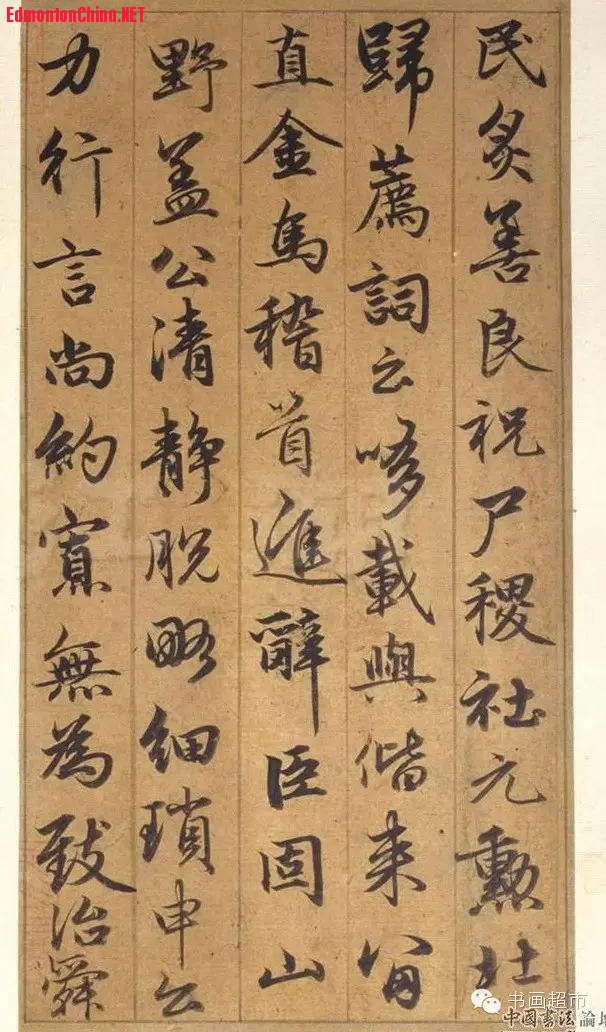 EdmontonChina.NET
民炙善良祝尸稷社元勲社
歸薦詞云嗲載與偕来曾
直金馬稽首進辭臣固山
野盖公清静脱略细瑣申公
力行言尚約寘無為致治舜
书画超市
中國書法論壇